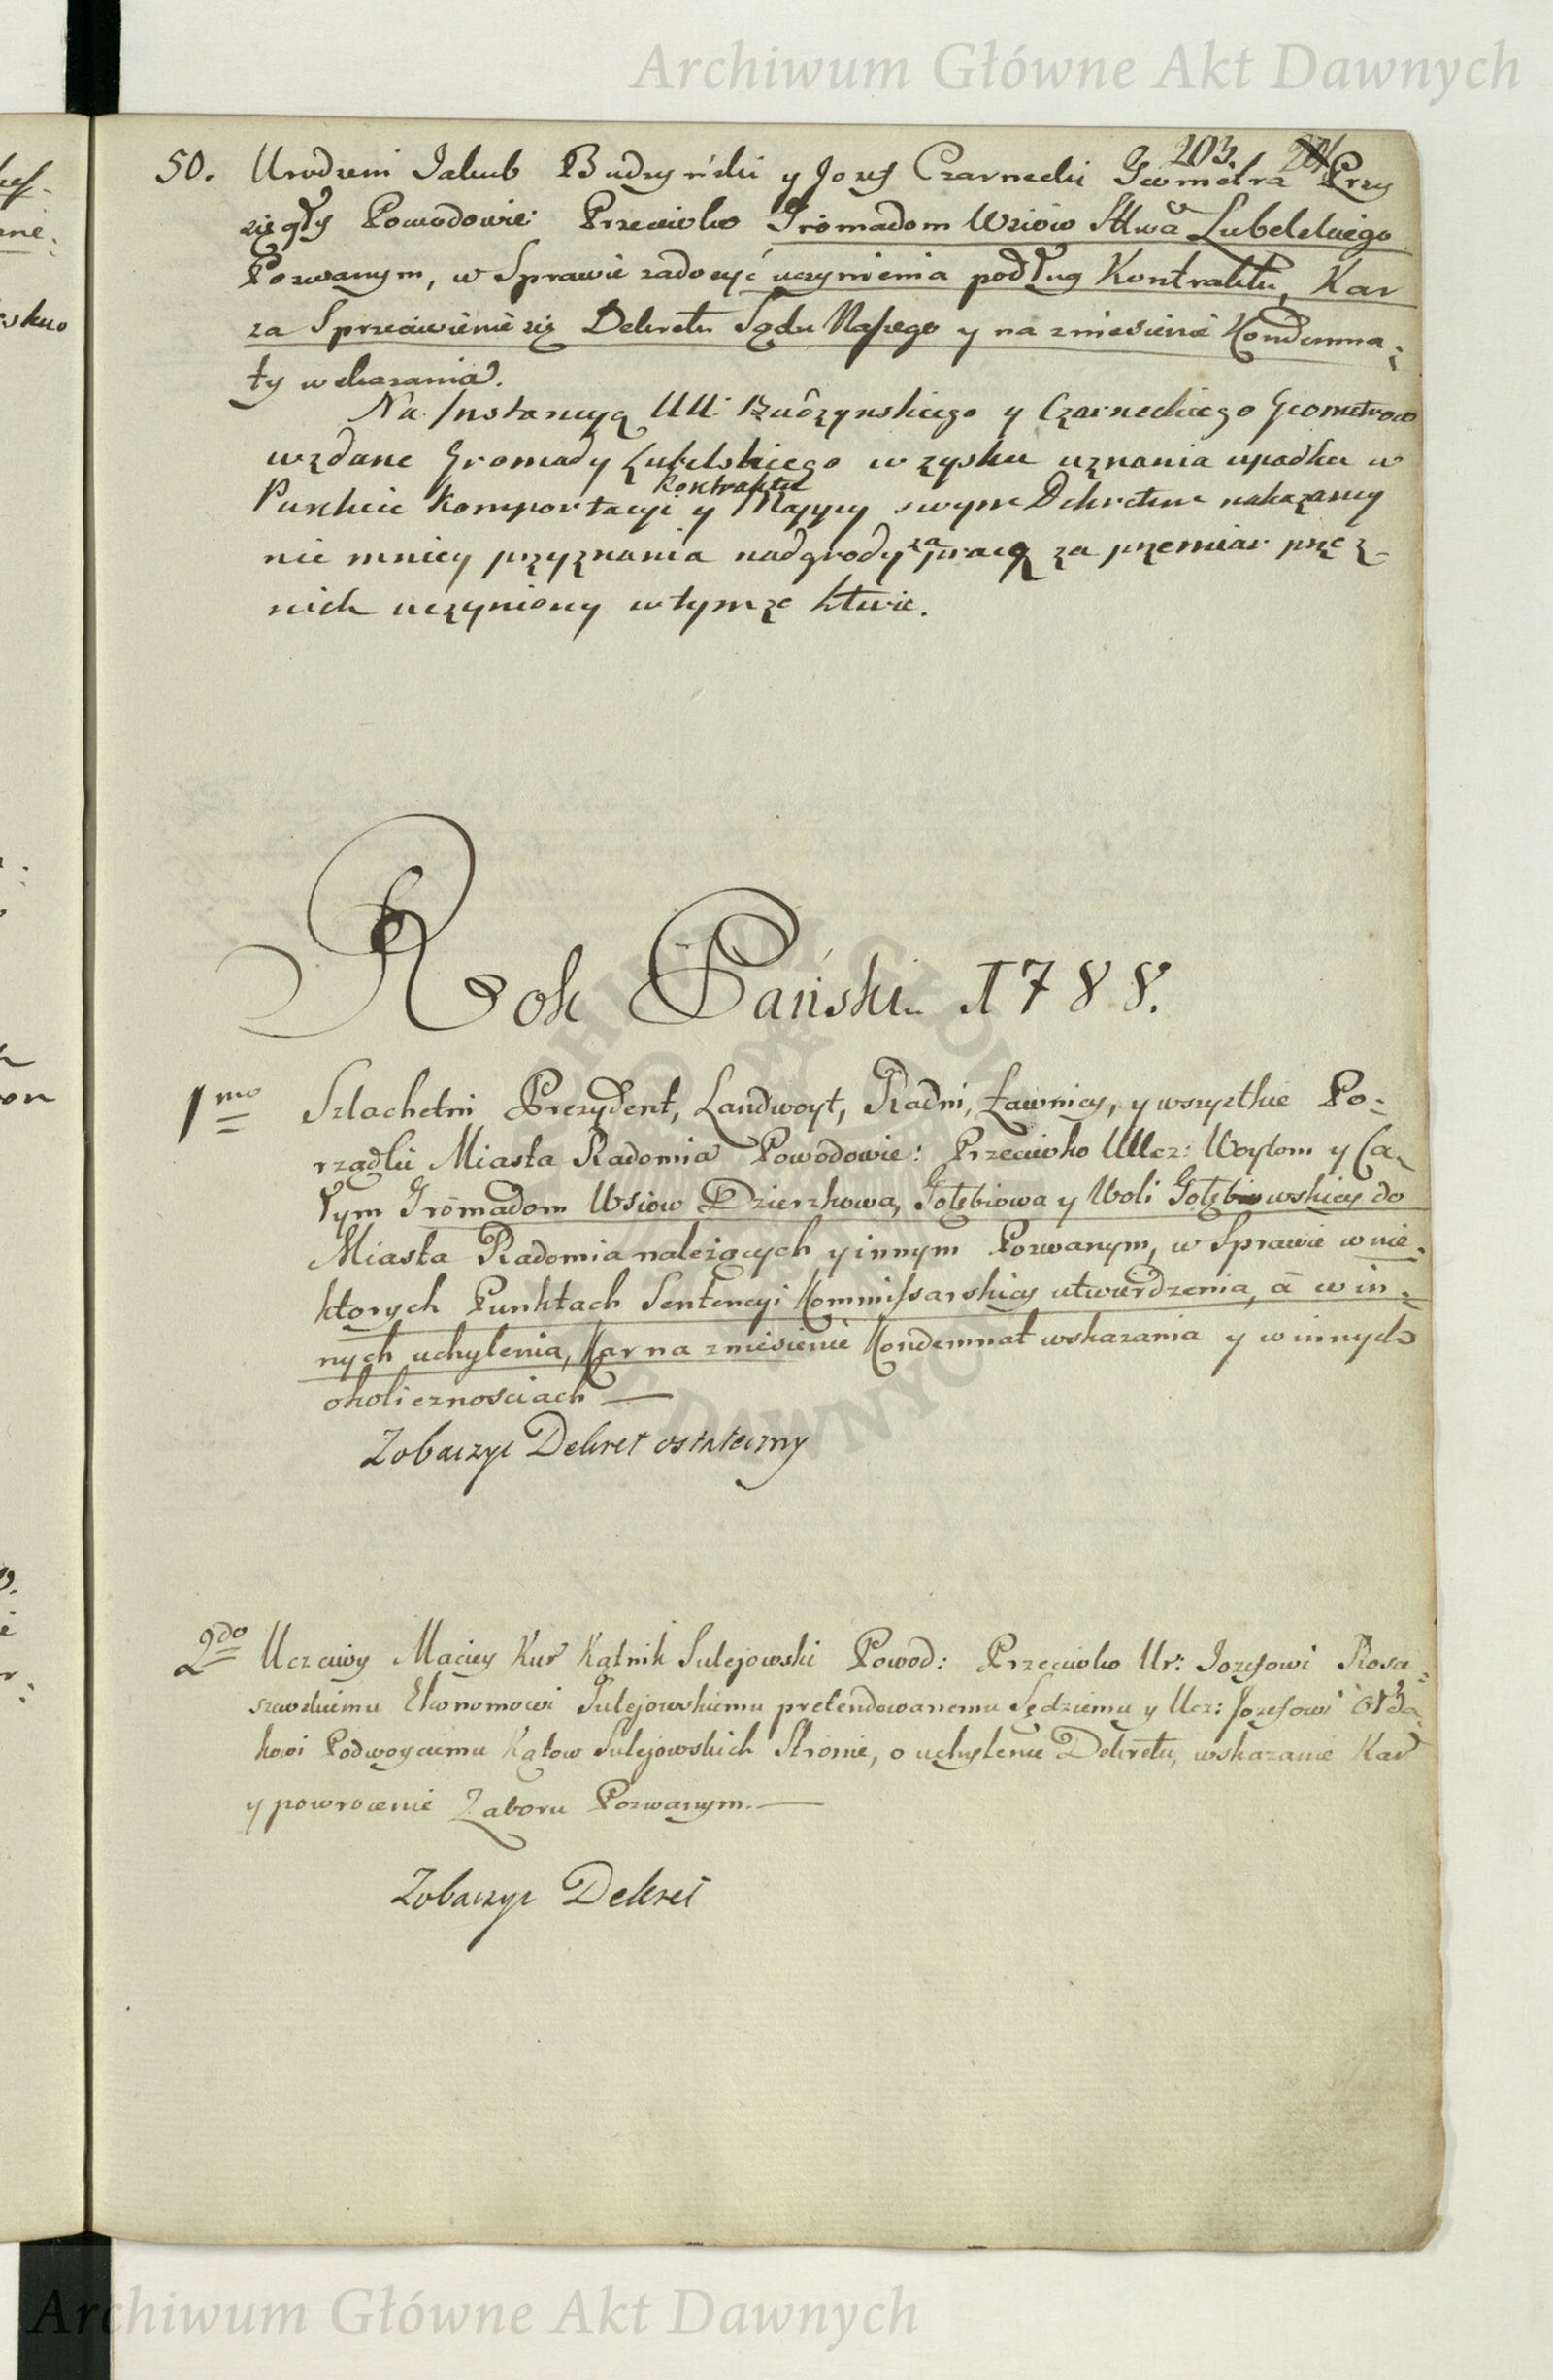 Archiwum Główne Akt Dawnych
203.
50. Urodzeni Jakub Budzyński y Jozef Czarnecki Jeometra Przy
zięgły Powodowie: Przeciwko Gromadom Wsiów Sttwa Lubelskiego
Pozwanym, w Sprawie zadosyć uczynienia podług Kontraktu, Kar
za Sprzeciwienie się Dekretu Sądu Naszego y na zniesienie Kondemna:
ty wskazania.
Na Instancyą UU: Budzynskiego y Czarneckiego Geometrow
wzdane Gromady Lubelskiego w zysku uznania upadku w
Kontraktu
Punkcie Komportacyi y Mappy swym Dekretem nakazaney
nie mniey przyznania nadgrody za pracą za pzemiar pzez
nich uczyniony w tymze Sttwie.
Rok Pański 1788.
1mo Szlachetni Prezydent, Landwoyt, Radni, Ławnicy, y wszystkie Po:
rządki Miasta Radomia Powodowie: Przeciwko UUcz: Woytom y Ca
łym Gromadom Wsiow Dzierzkowa, Gołębiowa y Woli Gołębiowskiey do
Miasta Radomia należących y innym Pozwanym, w Sprawie w nie:
ktorych Punktach Sentencyi Kommissarskiey utwierdzenia, à w in:
nych uchylenia, Kar na zniesienie Kondemnat wskazania y w innych
okolicznosciach —
Zobaczyc Dekret ostateczny
2do Uczciwy Maciey Kur Kątnik Sulejowski Powod: Przeciwko Ur: Jozefowi Rosa:
szewskiemu Ekonomowi Sulejowskiemu pretendowanemu Sędziemu y Ucz: Jozefowi
kowi Podwoyciemu Kątow Sulejowskich Stronie, o uchylenie Dekretu, wskazanie Kar
y powrocenie Zaboru Pozwanym. —
Zobaczyc Dekret
Archiwum Główne Akt Dawnych